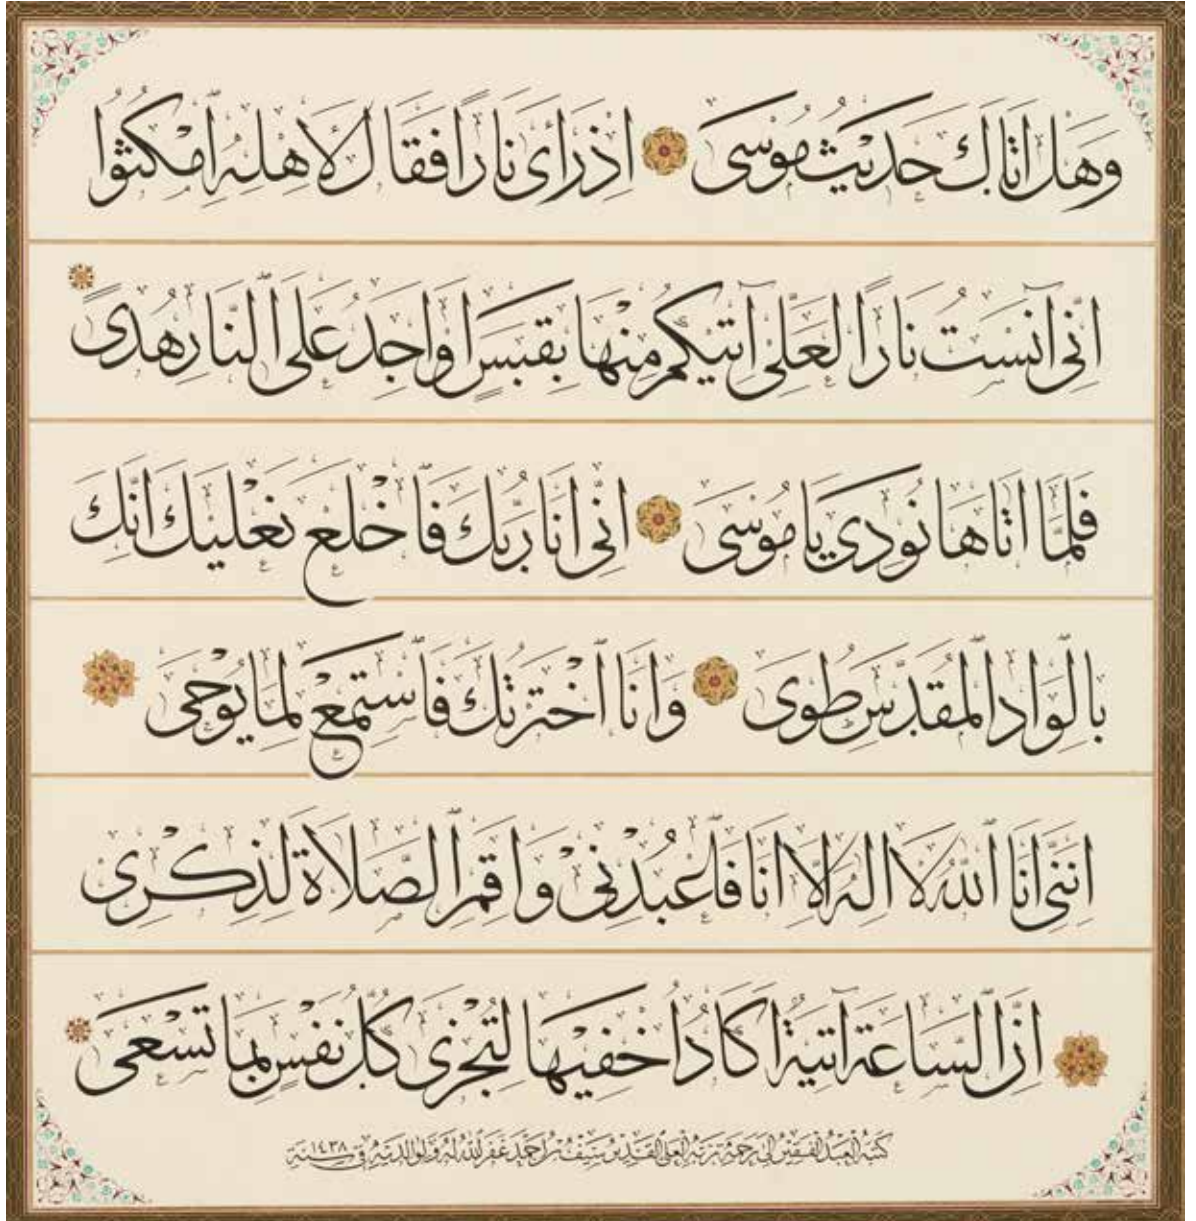 وَهَلْ اَتَاكَ حَدِيثُ مُوسَى اِذْ رَأَى نَارًا فَقَالَ لِأَهْلِهِ امْكُثُوا
اِنِّي آنَسْتُ نَارًا لَعَلِّي آتِيكُمْ مِنْهَا بِقَبَسٍ اَوْ اَجِدُ عَلَى النَّارِ هُدًى
فَلَمَّا اَتَاهَا نُودِيَ يَا مُوسَى اِنِّي اَنَا رَبُّكَ فَاخْلَعْ نَعْلَيْكَ اِنَّكَ
بِالْوَادِ الْمُقَدَّسِ طُوًى وَاَنَا اخْتَرْتُكَ فَاسْتَمِعْ لِمَا يُوحَى
اِنَّنِي اَنَا اللّٰهُ لَا اِلٰهَ اِلَّا اَنَا فَاعْبُدْنِي وَاَقِمِ الصَّلَاةَ لِذِكْرِي
اِنَّ السَّاعَةَ آتِيَةٌ اَكَادُ اُخْفِيهَا لِتُجْزَى كُلُّ نَفْسٍ بِمَا تَسْعَى
كتبه العبد الفقير الى رحمة ربه العلي القدير سيف بن احمد غفر الله له ولوالديه في سنة ١٤٣٨